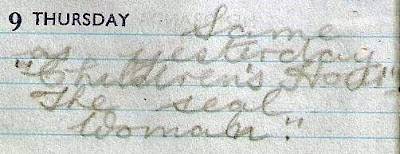 9 THURSDAY
Same
as yesterday
"Children's Hour"
The seal
Woman".